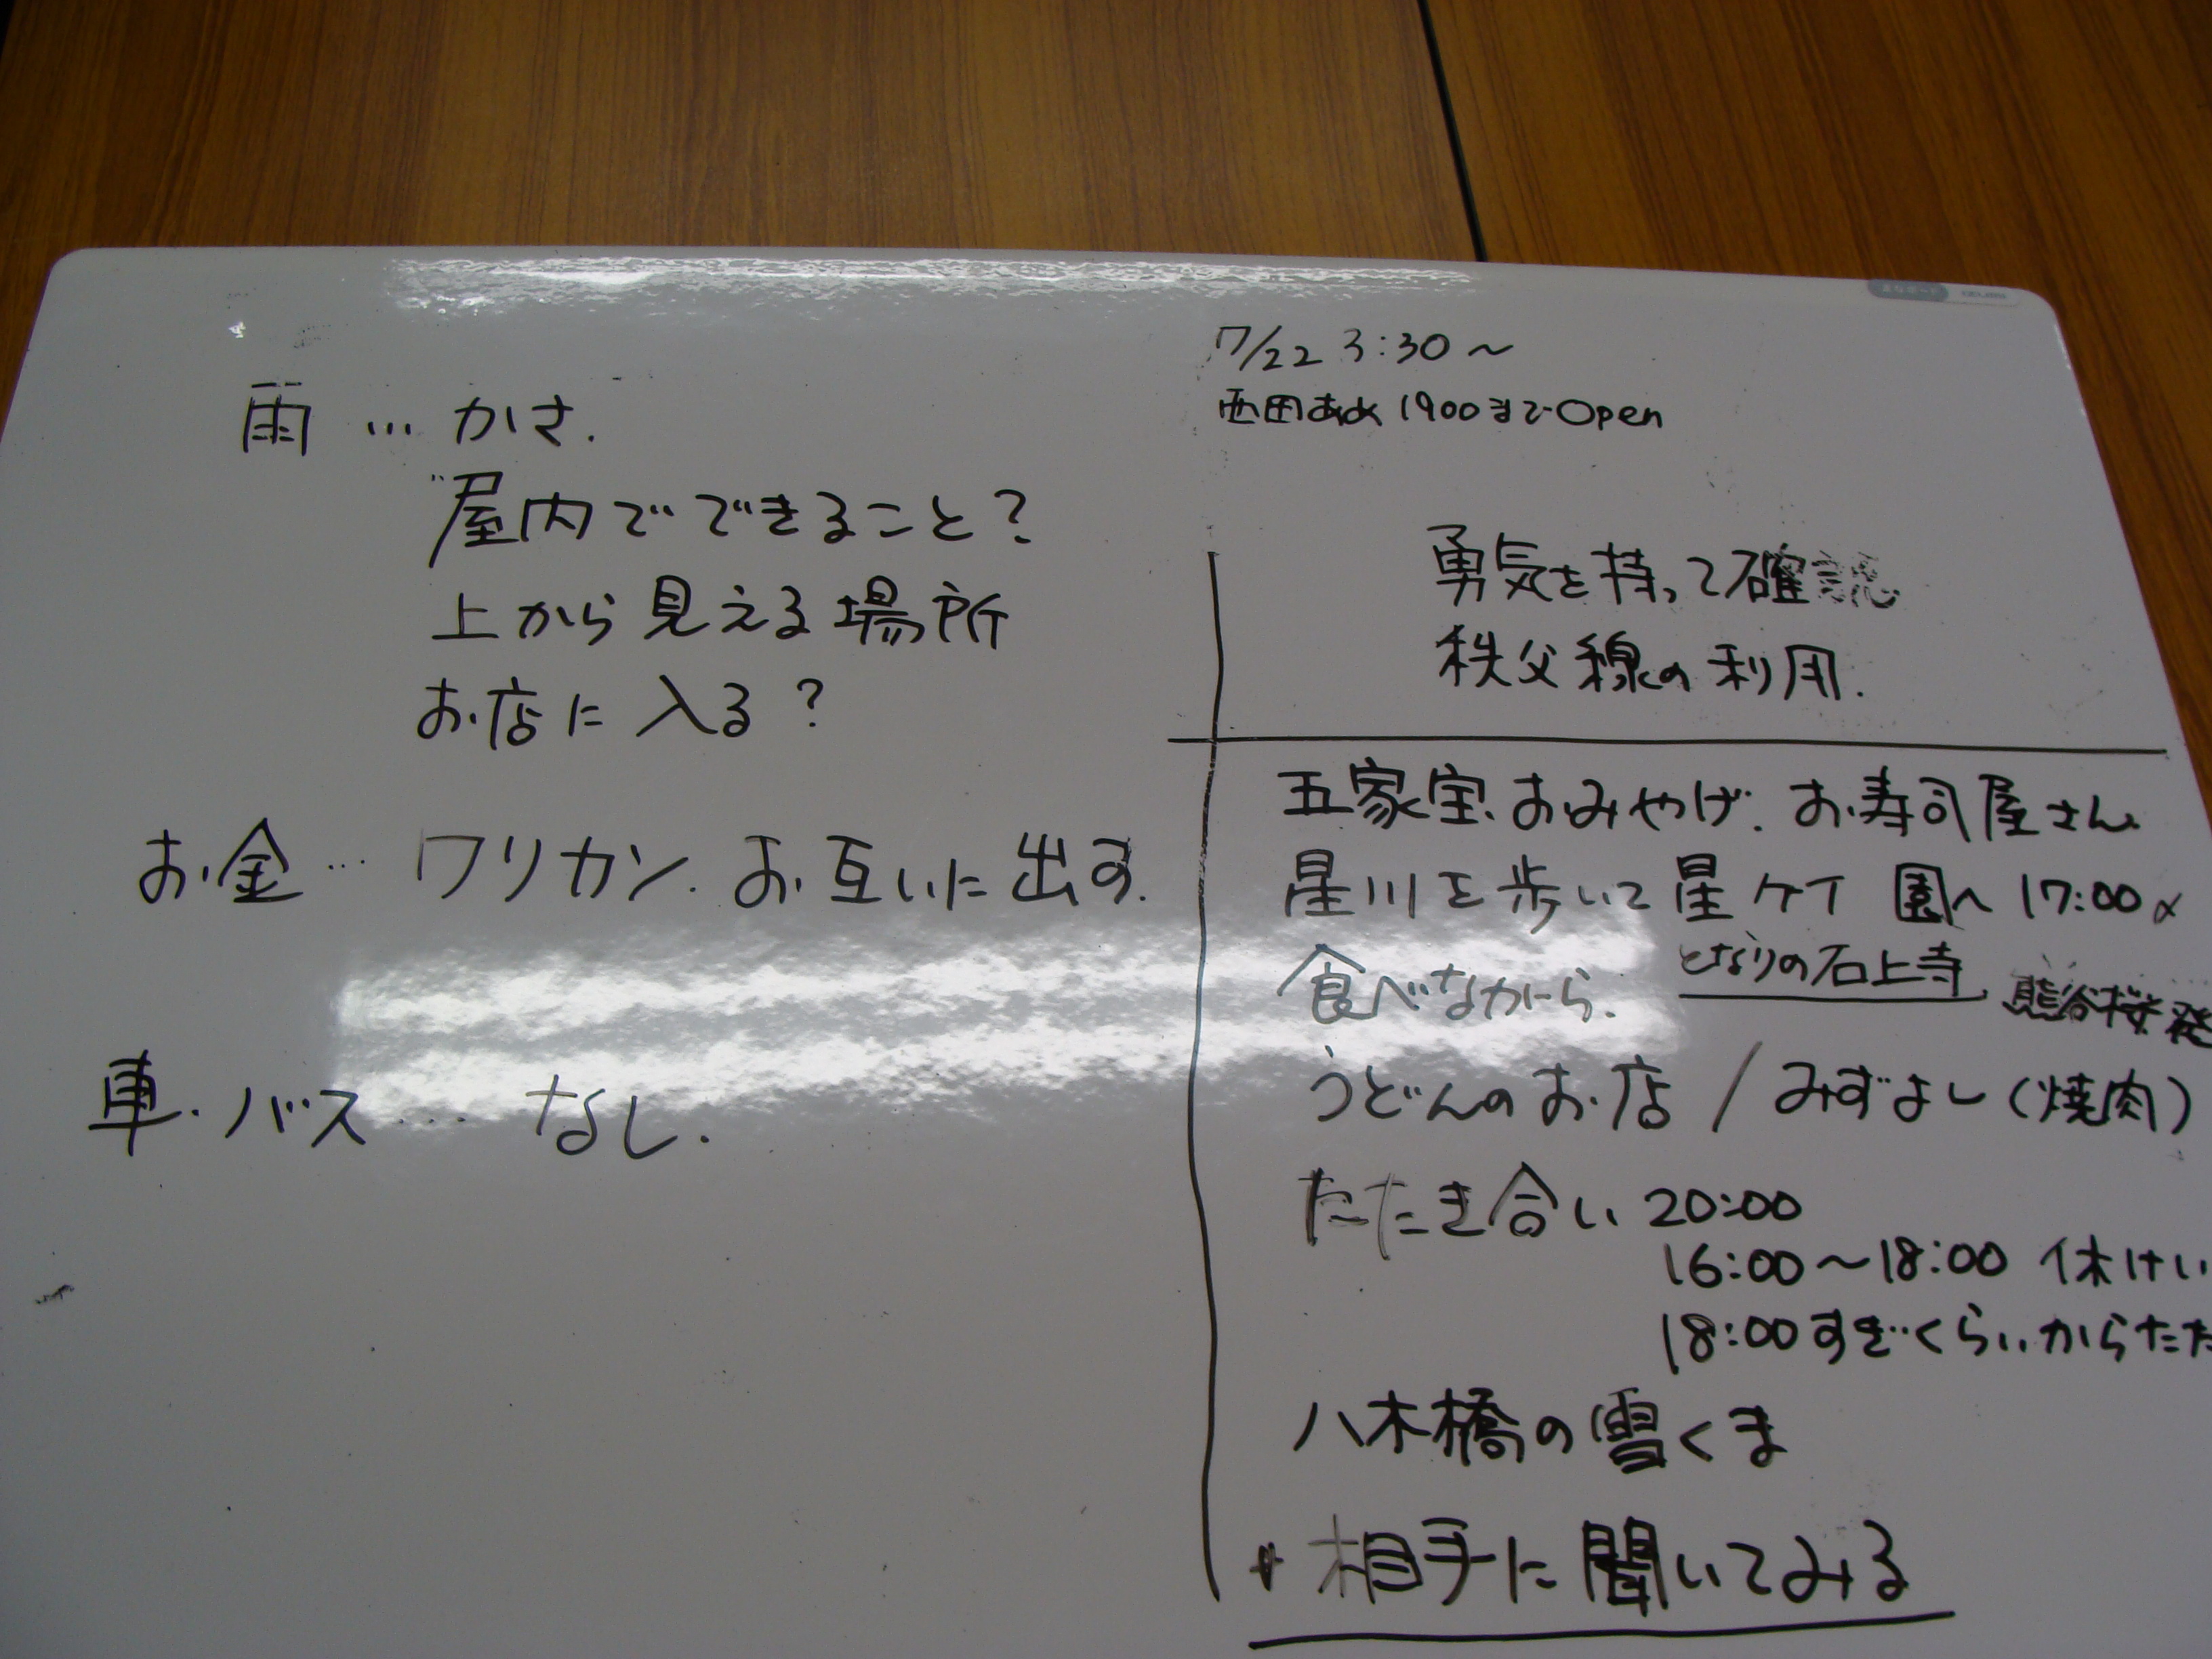 雨…かさ.
屋内でできること?
上から見える場所
お店に入る?
お金…ワリカン.お互いに出す.
車.バス….なし.
7/22 3:30~
西田あめ 1900までOpen
勇気を持って確認
秩父線の利用.
五家宝、おみやげ.お寿司屋さん
星川を歩いて 星ケイ 園へ 17:00〆
食べながら.
となりの石上寺
熊谷桜発
うどんのお店 / みずよし(焼肉)
たたき合い 20:00
16:00~18:00 休けい
18:00すぎくらいからたた
八木橋の雪くま
相手に聞いてみる